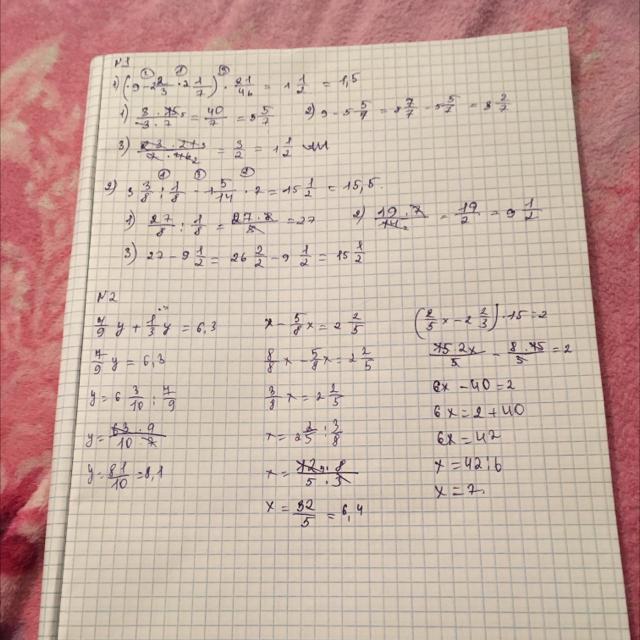 N1
1) (9 - 2 2/3 · 2 1/7) · 21/46 = 1 1/2 = 1,5
1) 8 · 15/3 · 7 = 40/7 = 5 5/7 2) 9 - 5 5/7 = 8 7/7 - 5 5/7 = 3 2/7
3) 23 · 21/7 · 46 = 3/2 = 1 1/2
2) 3 3/8 : 1/8 - 1 5/14 · 7 = 15 1/2 = 15,5.
1) 27/8 : 1/8 = 27 · 8/8 = 27 2) 19 · 7/14 = 19/2 = 9 1/2
3) 27 - 9 1/2 = 26 2/2 - 9 1/2 = 15 1/2
N2
4/9 y + 1/3 y = 6,3
7/9 y = 6,3
y = 6 3/10 : 7/9
y = 63 · 9/10 · 7
y = 81/10 = 8,1
x - 5/8 x = 2 2/5
8/8 x - 5/8 x = 2 2/5
3/8 x = 2 2/5
x = 2 2/5 : 3/8
x = 12 · 8/5 · 3
x = 32/5 = 6,4
(2/5 x - 2 2/3) · 15 = 2
15 · 2x/5 - 8 · 15/3 = 2
6x - 40 = 2
6x = 2 + 40
6x = 42
x = 42 : 6
x = 7.